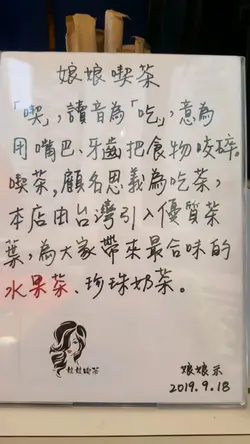 娘娘喫茶
「喫」，讀音為「吃」，意為
用嘴巴、牙齒把食物咬碎。
喫茶，顧名思義為吃茶，
本店由台灣引入優質茶
葉，為大家帶來最合味的
水果茶、珍珠奶茶。
娘娘喫茶
娘娘示
2019.9.18